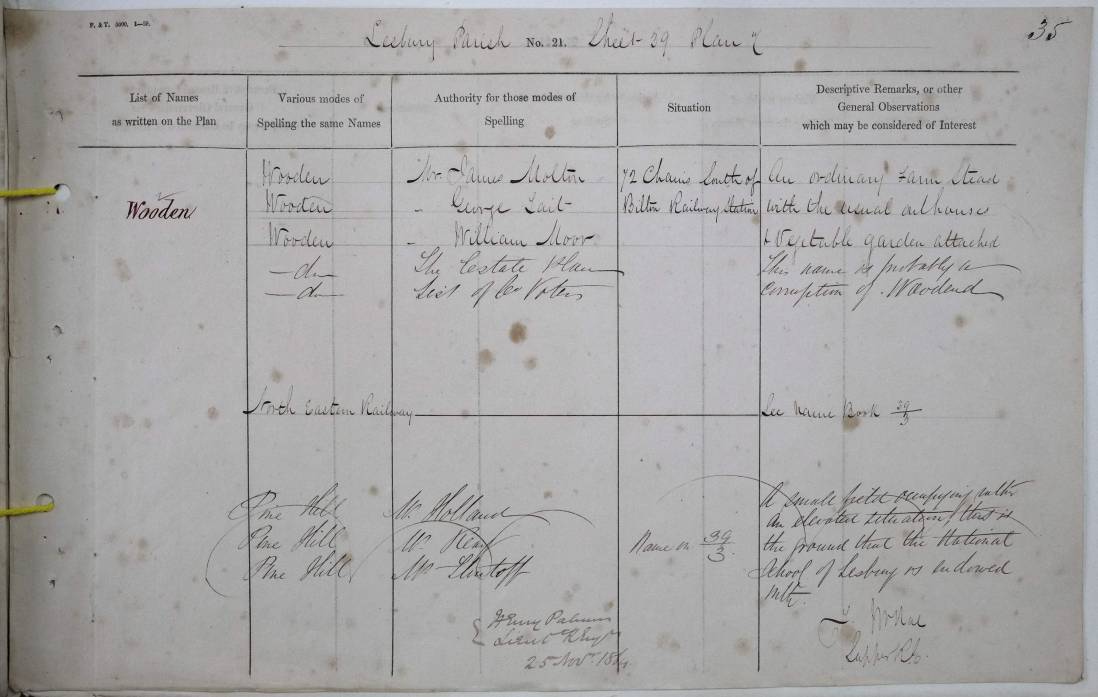 F. & T. 5000. 1—59.
35
Lesbury Parish No. 21. Sheet 39 Plan 7
List of Names
as written on the Plan
Various modes of
Spelling the same Names
Authority for those modes of
Spelling
Situation
Descriptive Remarks, or other
General Observations
which may be considered of Interest
Wooden
Wooden
Wooden
Wooden
—do—
—do—
Mr. James Molton
" George Tait
" William Moor
The Estate Plan
List of Co Voters
72 Chains South of
Bilton Railway Station
An ordinary Farm Stead
with the usual outhouses
& Vegetable garden attached
This name is probably a
corruption of Woodend
North Eastern Railway
See Name Book 39/3
Pine Hill
Pine Hill
Pine Hill
Mr. Holland
Mr.
Mr.
Name on 39/3.
A small field occupying rather
an elevated situation, this is
the ground that the National
School of Lesbury is endowed
with.
Henry Palmer
Lieut R. Engrs
25 Novr. 186